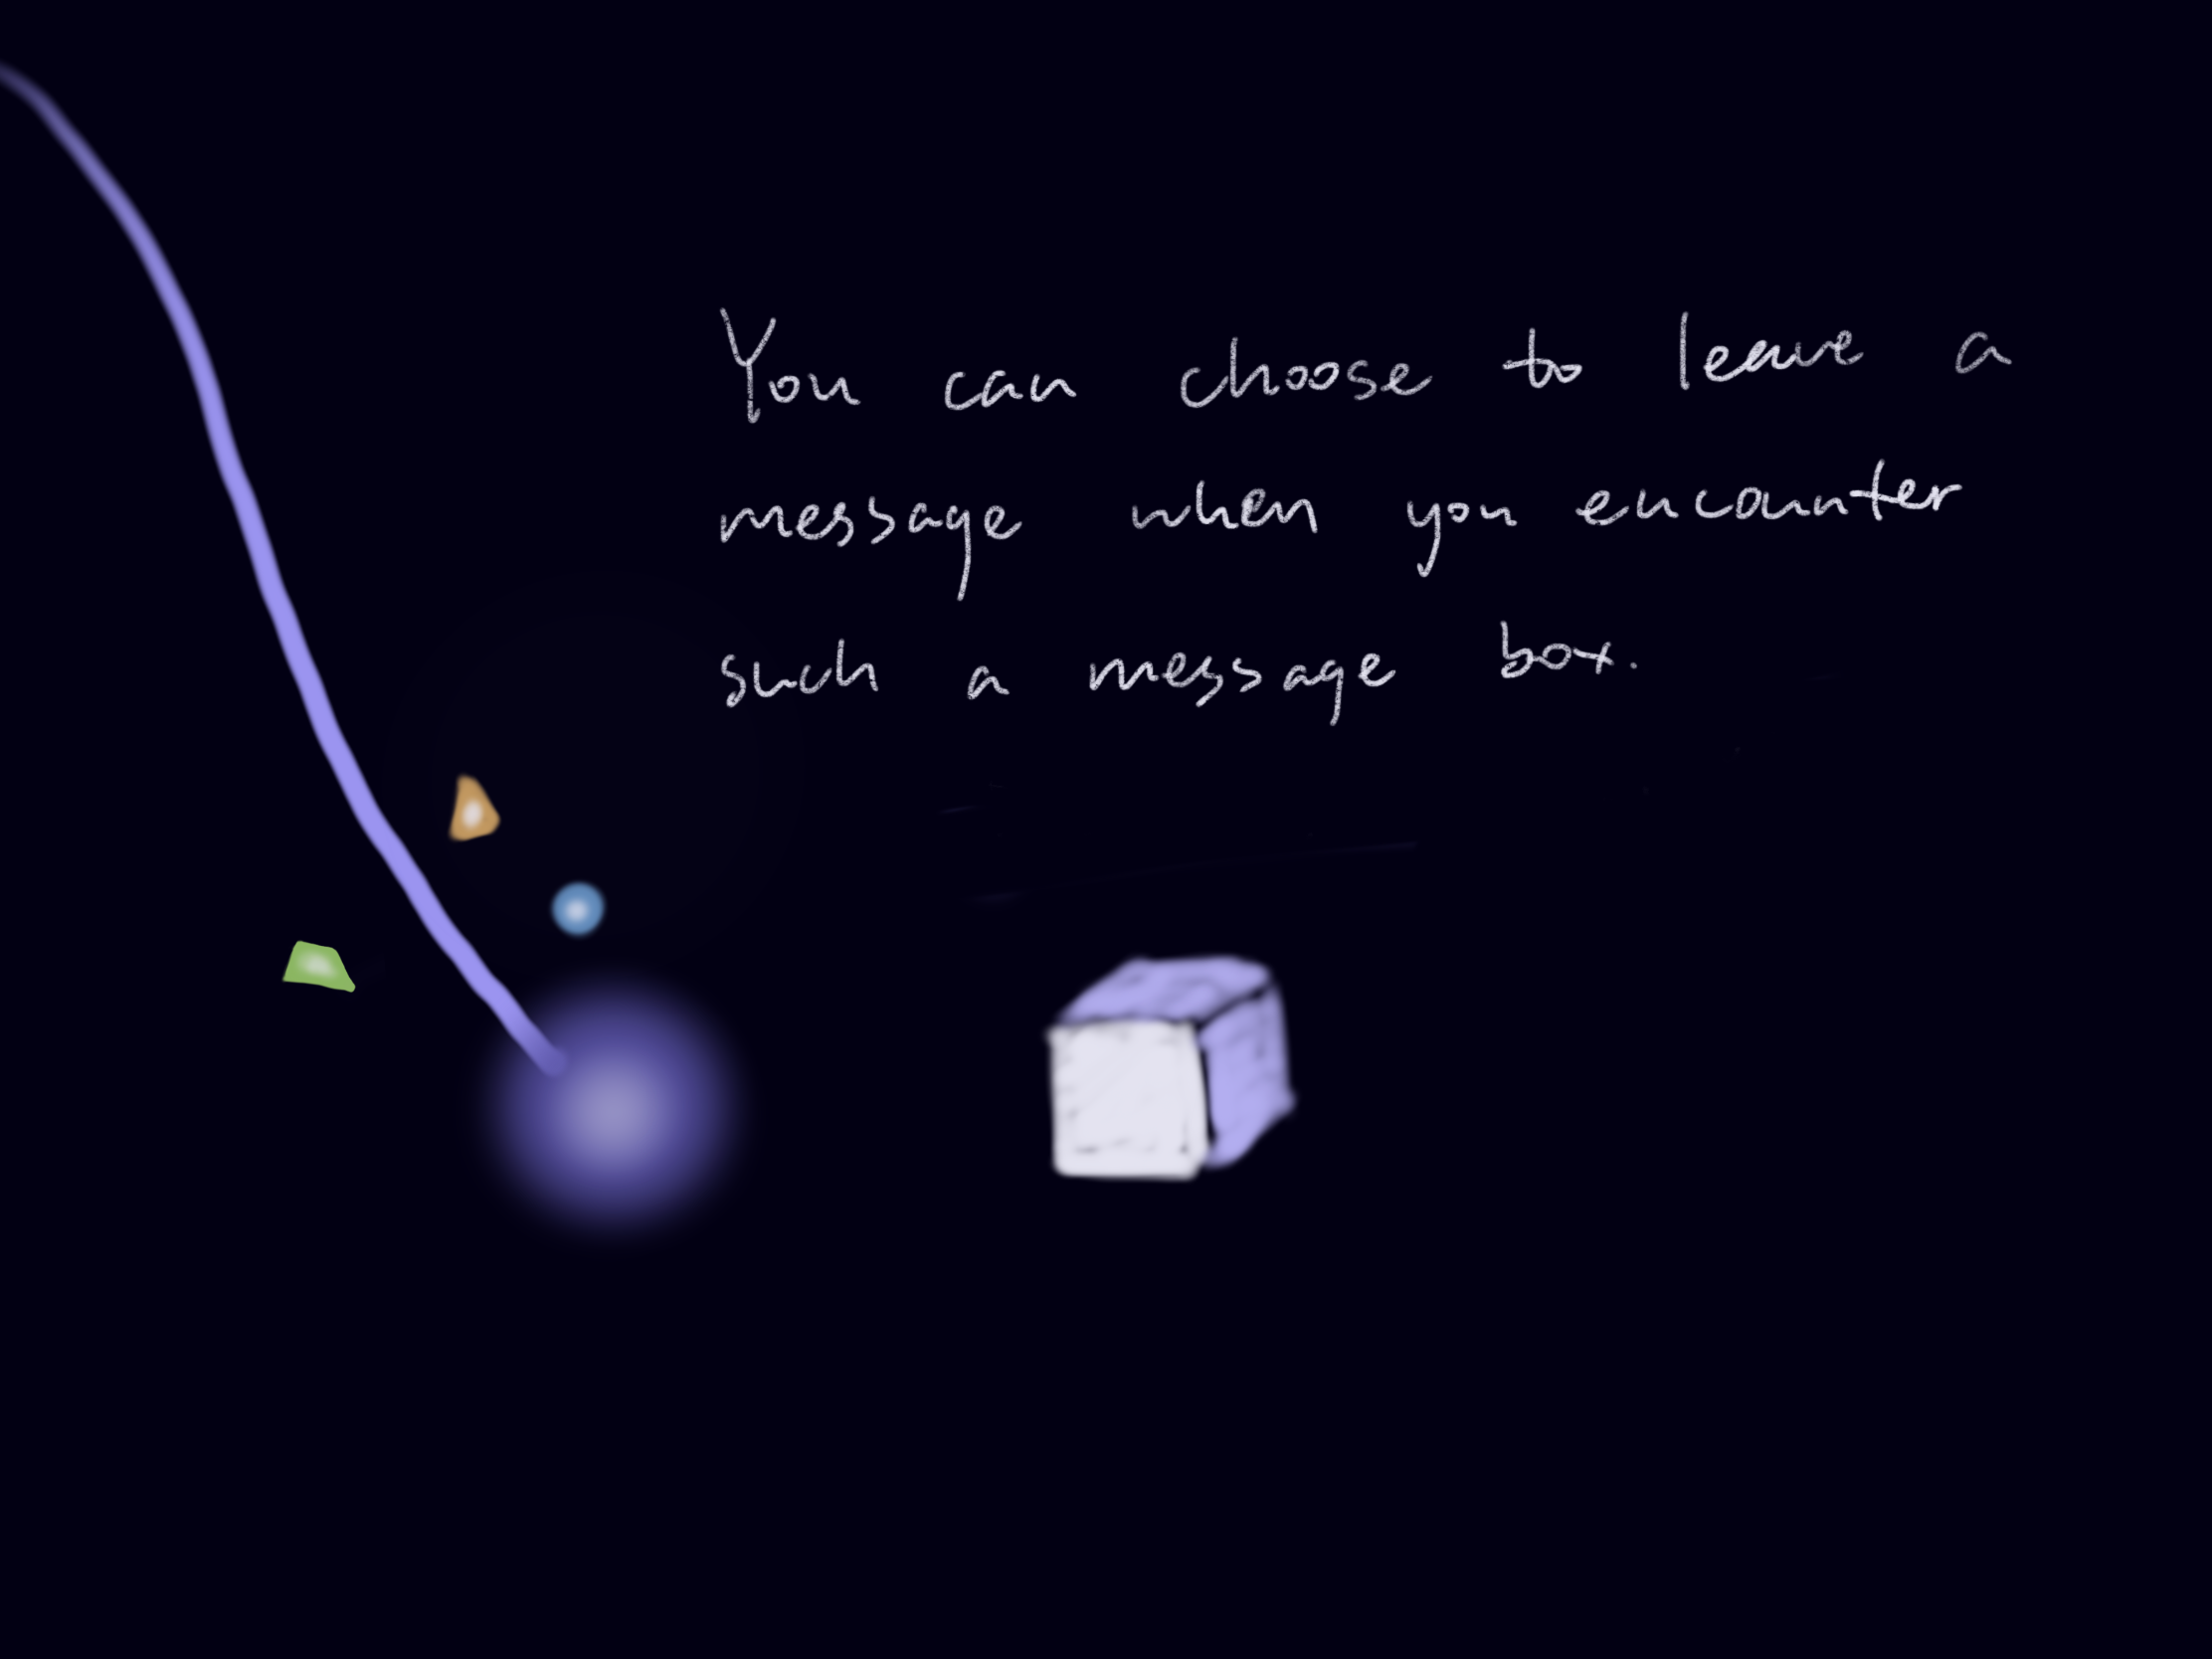 You can choose to leave a
message when you encounter
such a message box.